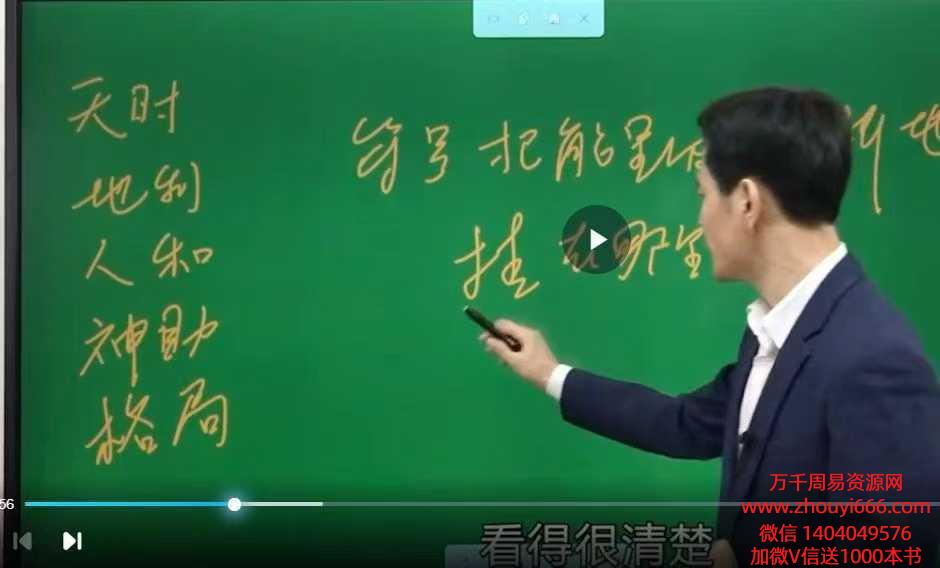 天时
地利
人和
神助
格局
符号把能量
挂在哪里
56
看得很清楚
万千周易资源网
www.zhouyi666.com
微信 1404049576
加微V信送1000本书